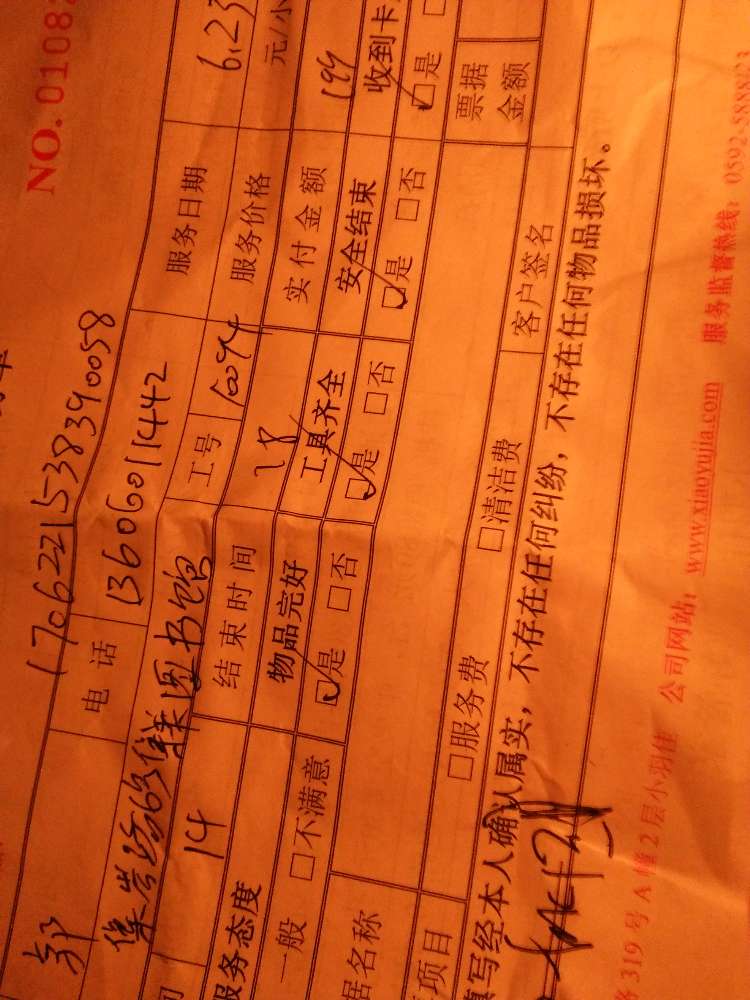 NO. 0108
170622153839005８
郭 电话 13606011442 服务日期 6.23
图书馆 工号 服务价格 元/小
14 结束时间 18 实付金额 199
服务态度 物品完好 工具齐全 安全结束 收到卡
一般 □不满意 ☑是 □否 ☑是 □否 ☑是 □否 ☑是
据名称 票据金额
项目 □服务费 □清洁费
填写经本人确认属实，不存在任何纠纷，不存在任何物品损坏。
客户签名
319号A幢2层小羽佳 公司网站：www.xiaoyujia.com 服务监督热线：0592-5888